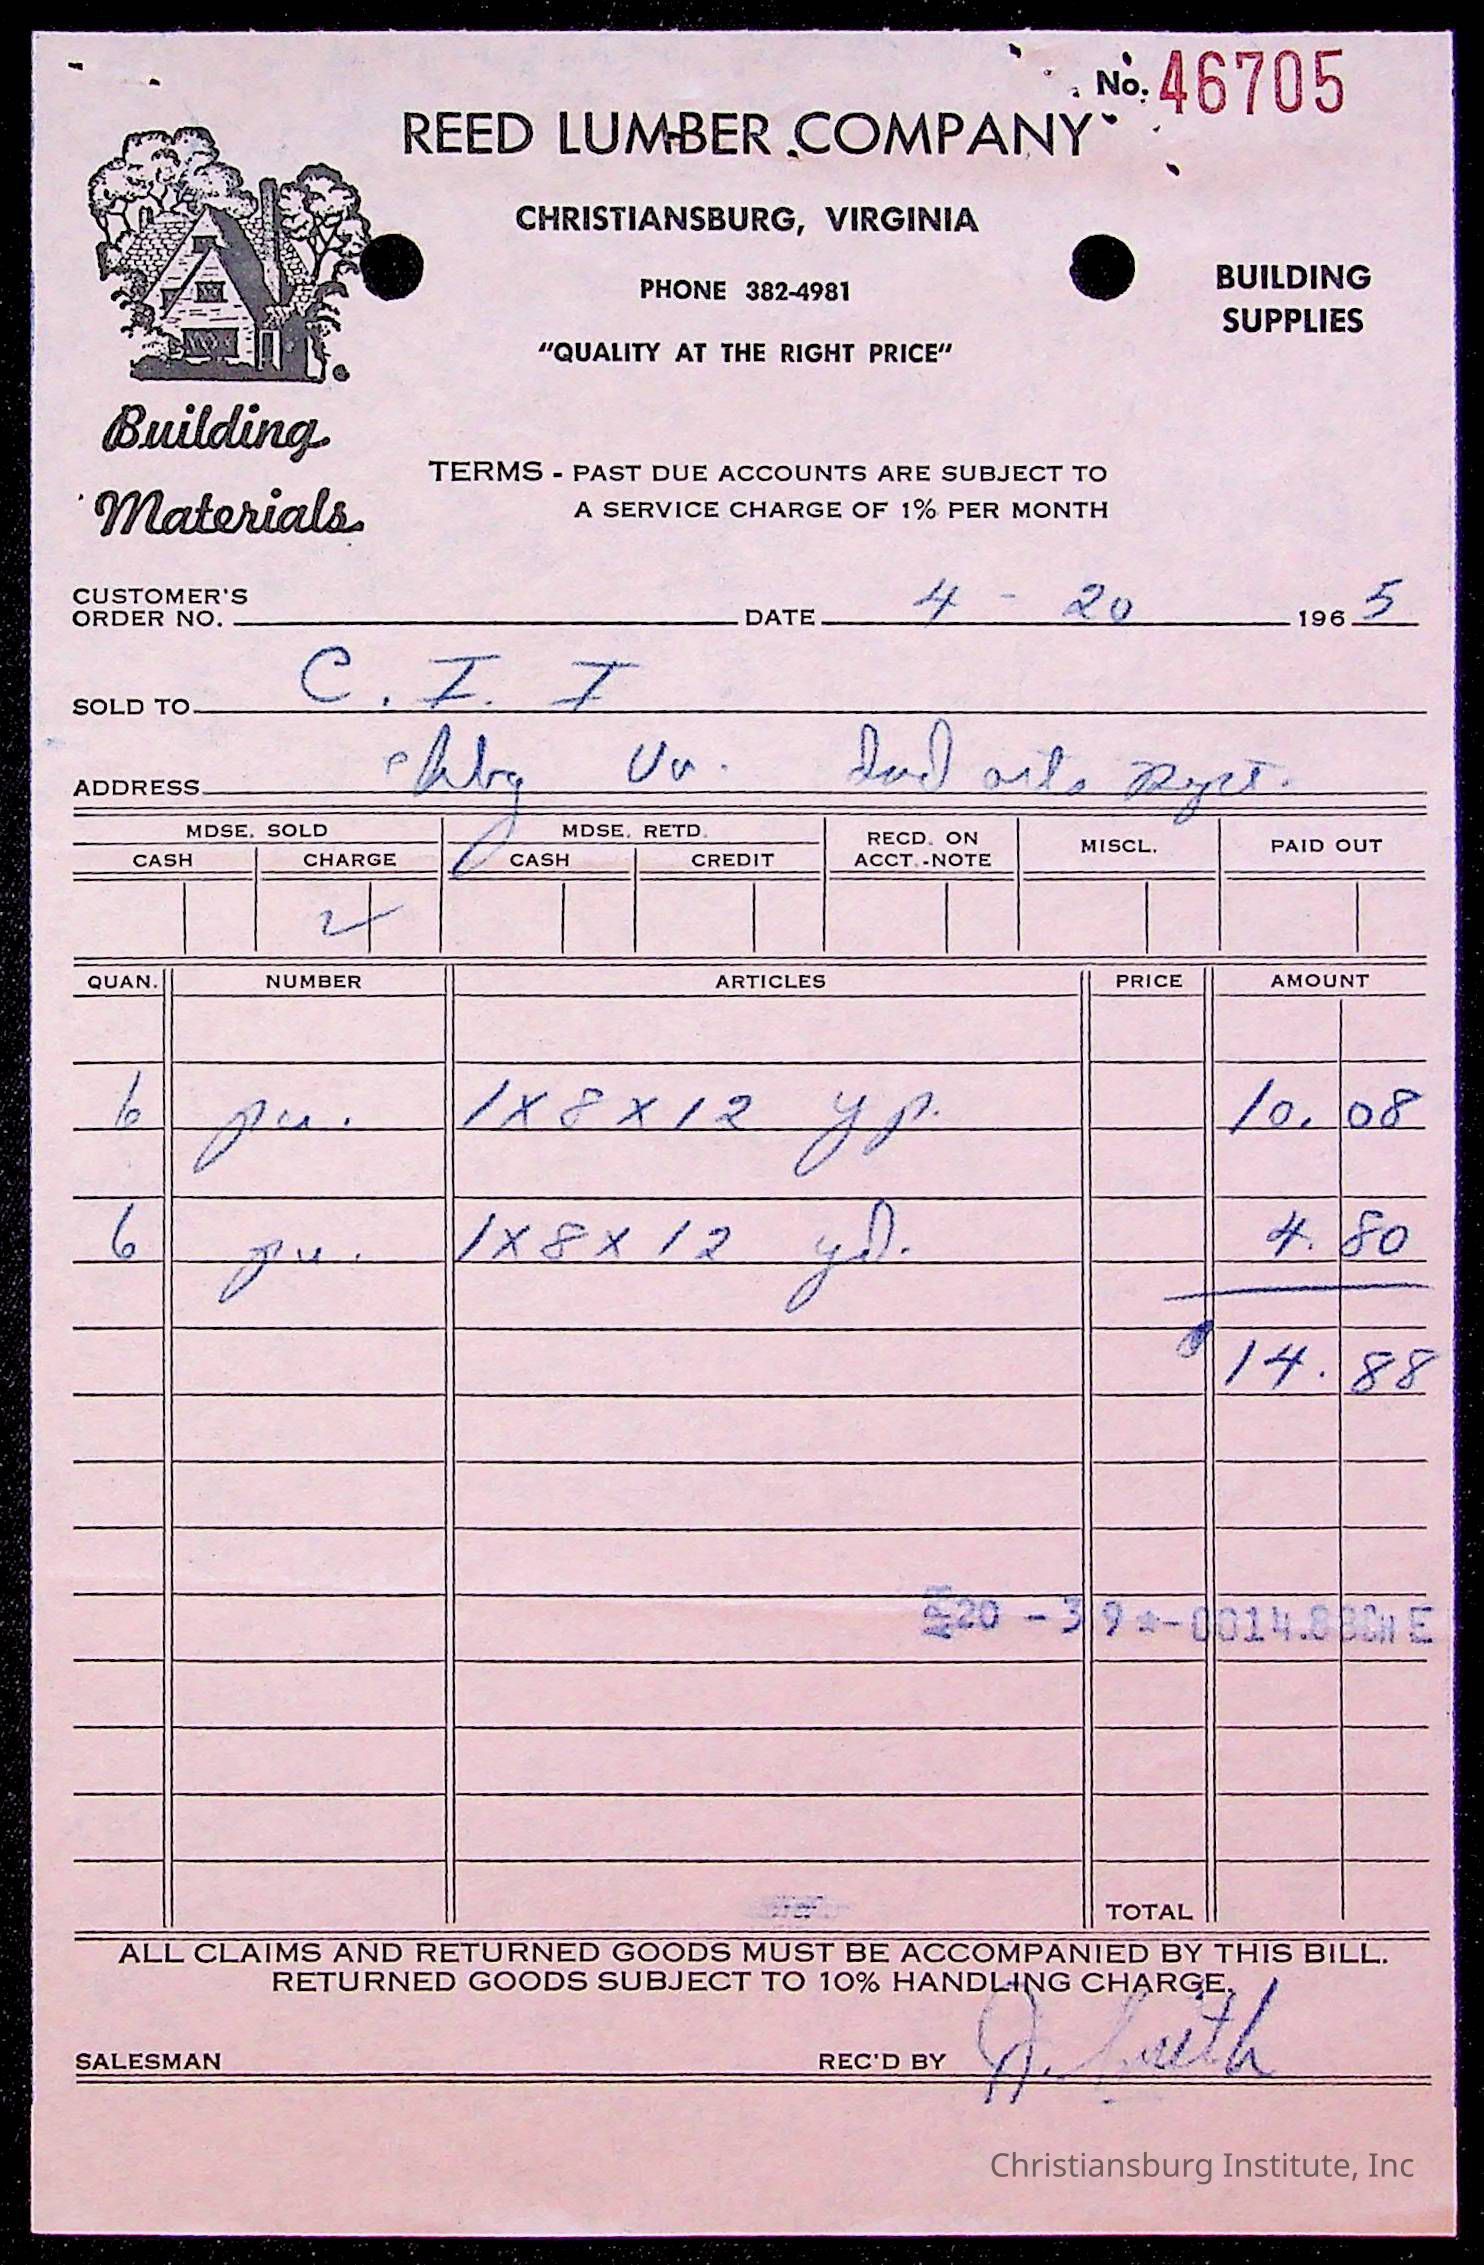 No. 46705
REED LUMBER COMPANY
CHRISTIANSBURG, VIRGINIA
PHONE 382-4981
"QUALITY AT THE RIGHT PRICE"
BUILDING
SUPPLIES
Building
Materials
TERMS - PAST DUE ACCOUNTS ARE SUBJECT TO
A SERVICE CHARGE OF 1% PER MONTH
CUSTOMER'S
ORDER NO. DATE 4 - 20 196 5
SOLD TO C. I. I
ADDRESS Va.
MDSE. SOLD MDSE. RETD. RECD. ON MISCL. PAID OUT
CASH CHARGE CASH CREDIT ACCT.-NOTE
QUAN. NUMBER ARTICLES PRICE AMOUNT
6 1X8X12 yp. 10.08
6 1X8X12 4.80
14.88
20 -39
TOTAL
ALL CLAIMS AND RETURNED GOODS MUST BE ACCOMPANIED BY THIS BILL.
RETURNED GOODS SUBJECT TO 10% HANDLING CHARGE.
SALESMAN REC'D BY Smith
Christiansburg Institute, Inc